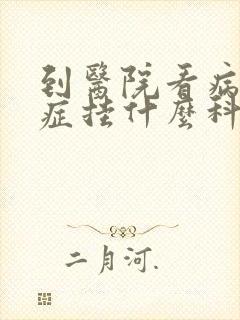 到醫院看病
症挂什麼科
二月河.